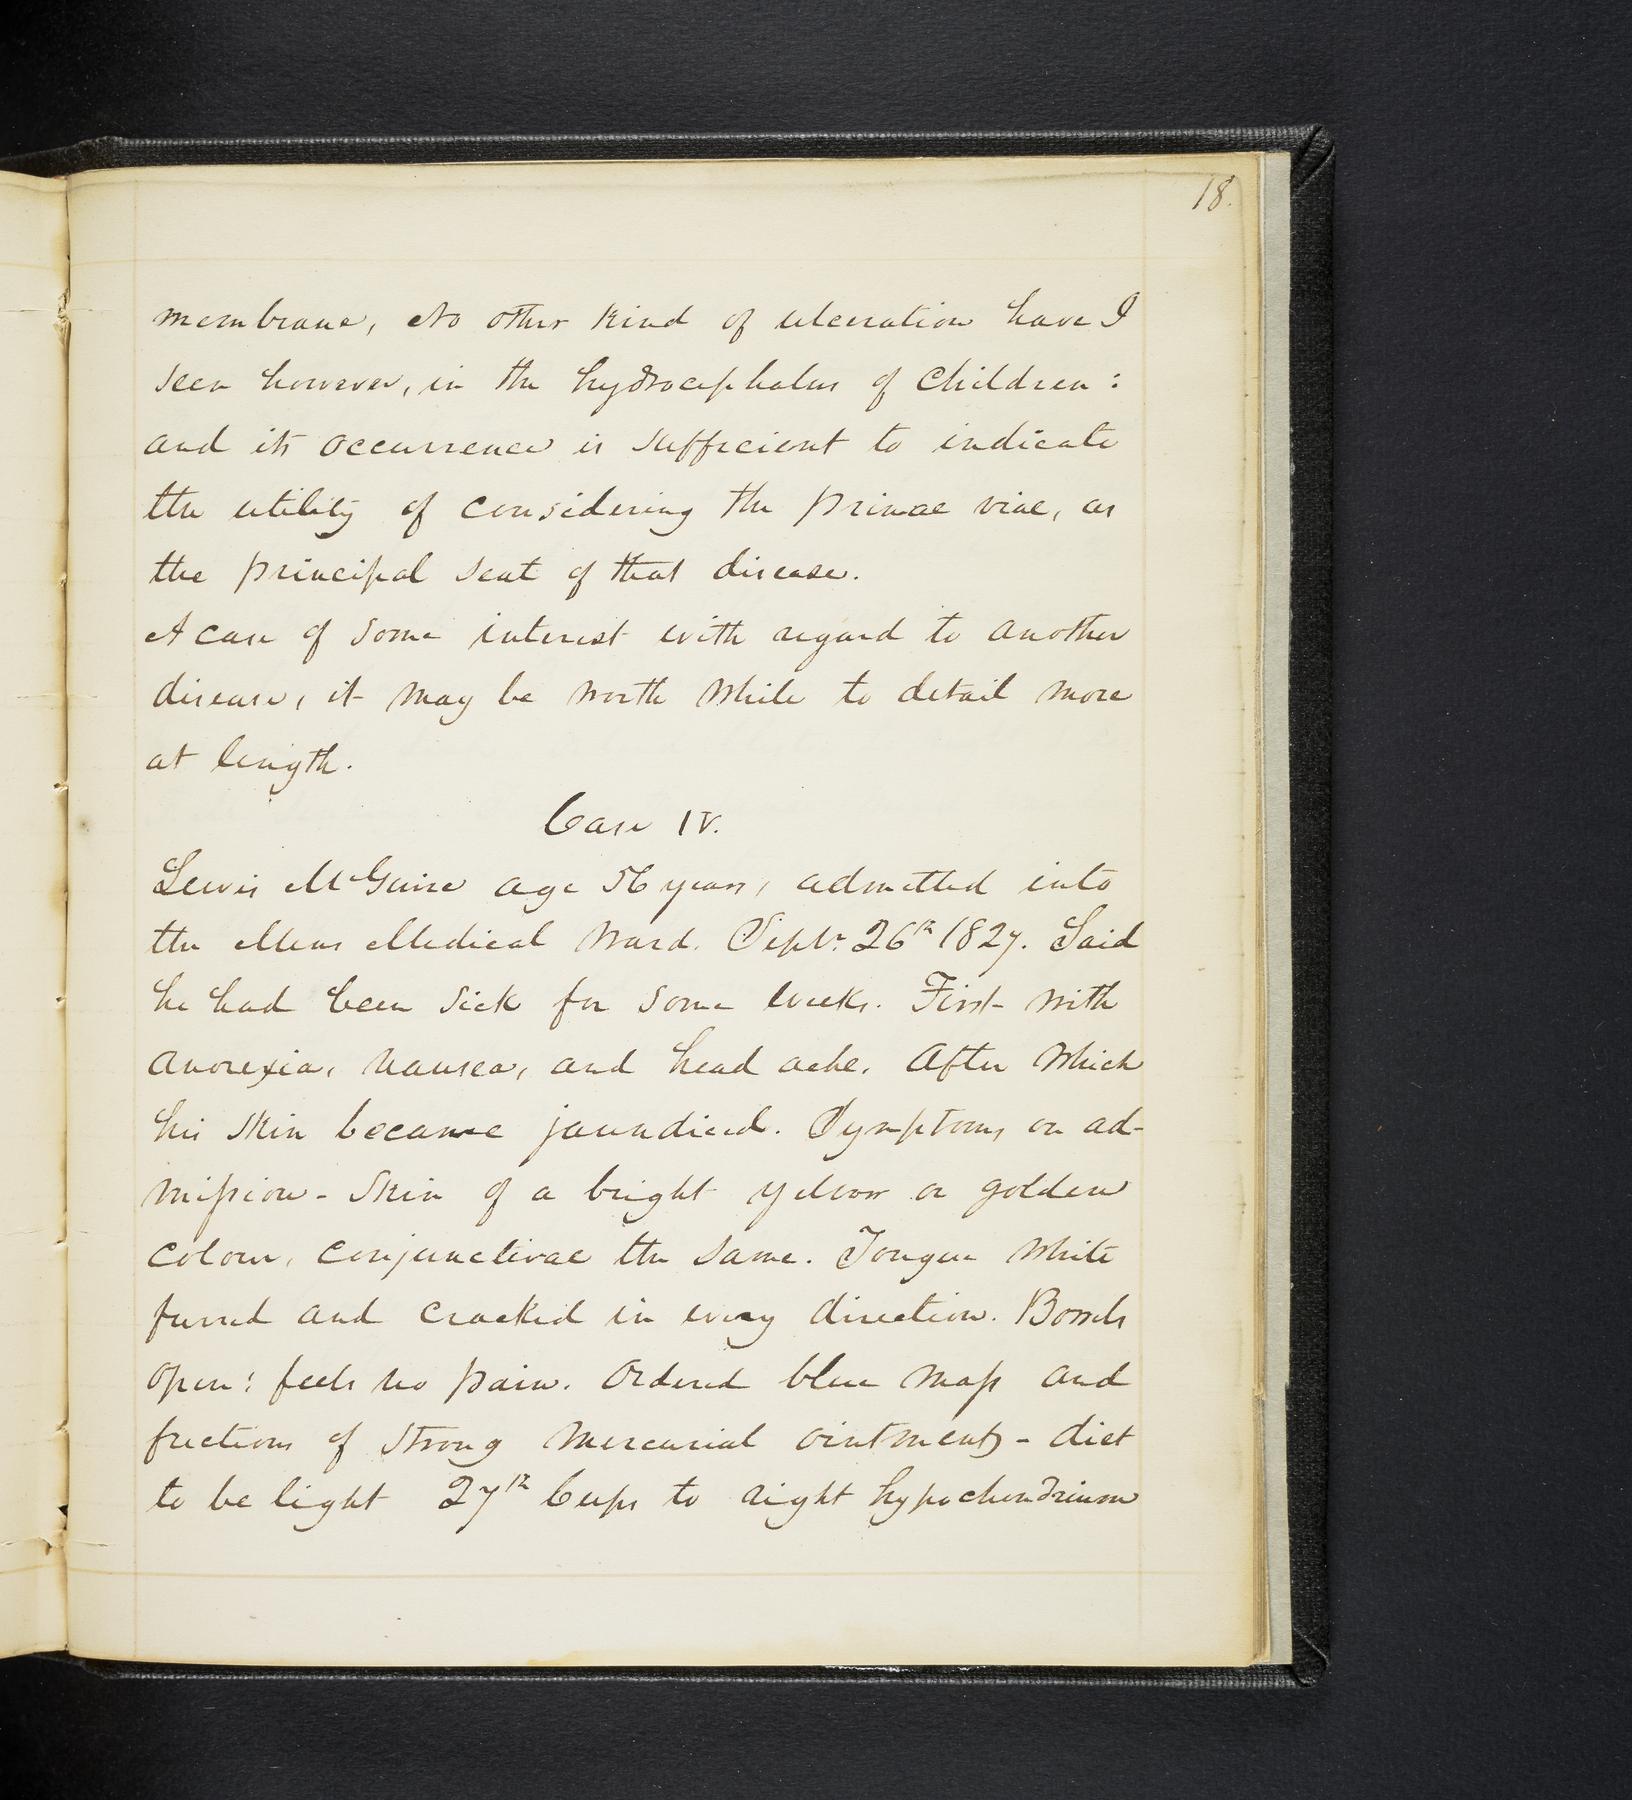 18.
membrane, No other kind of ulceration have I
seen however, in the hydrocephalus of Children:
and its occurrence is sufficient to indicate
the utility of considering the primae viae, as
the principal seat of that disease.
A case of some interest with regard to another
disease, it may be worth while to detail more
at length.
Case IV.
Lewis McGuire age 56 years, admitted into
the Mens Medical Ward. Septr. 26th 1827. Said
he had been sick for some weeks. First with
anorexia, nausea, and head ache. After which
his skin became jaundiced. Symptoms on ad-
mission - Skin of a bright yellow or golden
colour, conjunctivae the same. Tongue white
furred and cracked in every direction. Bowels
open: feels no pain. Ordered blue mass and
frictions of strong mercurial ointment - diet
to be light 27th Cups to right hypochondrium